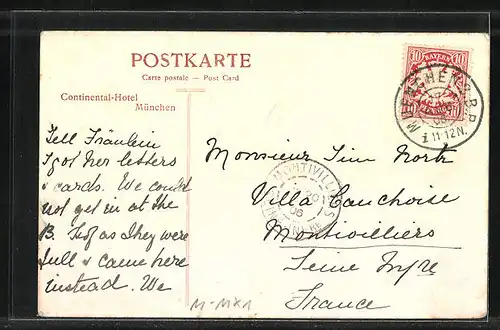 POSTKARTE
Carte postale – Post Card
Continental-Hotel
München
Tell Fräulein
I got her letters
& cards. We could
not get in at the
B. Hof as they were
full & came here
instead. We
BAYERN
10 10
MUENCHEN 2 B.P.
11-12N.
MONTIVILLIERS
06
Monsieur Tim
Villa Cauchoise
Montivilliers
Seine Infre
France